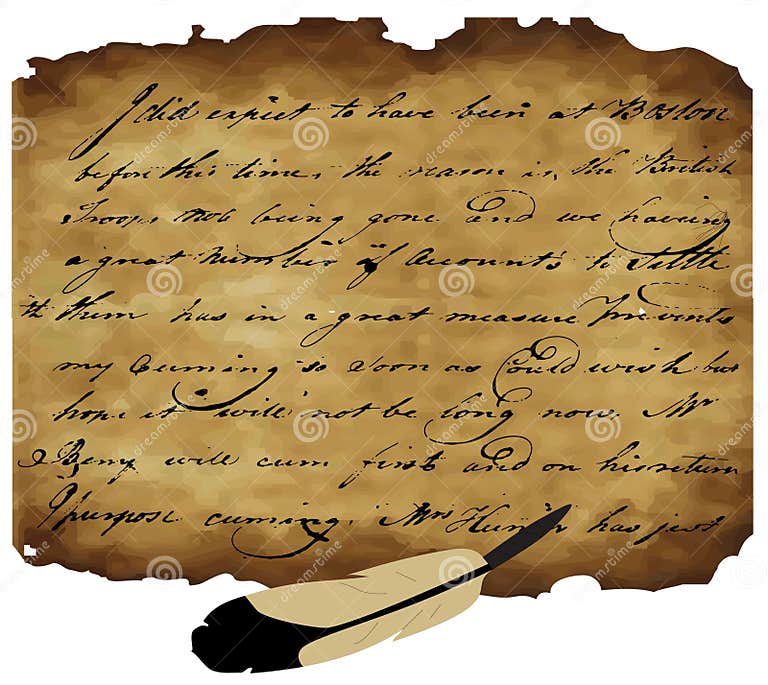 I did expect to have been at Boston
before this time, the reason is, the British
Troops not being gone and we haveing
a great number of Accounts to Settle
th them has in a great measure Prevents
my Cuming so Soon as Could wish but
hope it will not be long now. Mr
Benj will cum first and on his return
I purpose cuming. Mrs Hunter has just
dreamstime